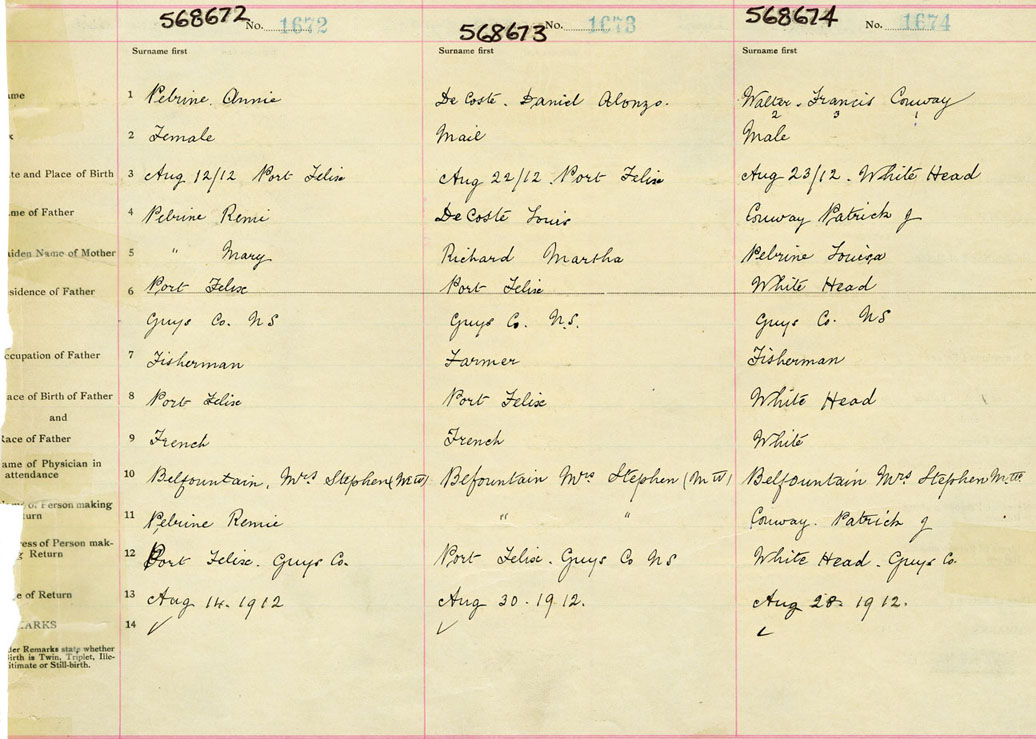 568672 No. 1672 568673 No. 1673 568674 No. 1674
Surname first Surname first Surname first
ame 1 Pelrine. Annie De Coste. Daniel Alonzo. Walter. Francis Conway
2 3 1
x 2 Female Mail Male
te and Place of Birth 3 Aug 12/12 Port Felix Aug 22/12. Port Felix Aug 23/12. White Head
me of Father 4 Pelrine Remi De Coste Louis Conway Patrick J
aiden Name of Mother 5 " Mary Richard Martha Pelrine Louisa
sidence of Father 6 Port Felix Port Felix White Head
Guys Co. NS Guys Co. N.S. Guys Co. NS
ccupation of Father 7 Fisherman Farmer Fisherman
ace of Birth of Father 8 Port Felix Port Felix White Head
and
Race of Father 9 French French White
ame of Physician in
attendance 10 Belfountain, Mrs Stephen (MW) Belfountain Mrs Stephen (MW) Belfountain Mrs Stephen MW
of Person making
turn 11 Pelrine Remie " " Conway. Patrick J
ress of Person mak-
g Return 12 Port Felix. Guys Co. Port Felix. Guys Co NS White Head. Guys Co.
e of Return 13 Aug 14. 1912 Aug 30. 1912. Aug 28. 1912.
ARKS 14 ✓ ✓ ✓
der Remarks state whether
Birth is Twin, Triplet, Ille-
itimate or Still-birth.